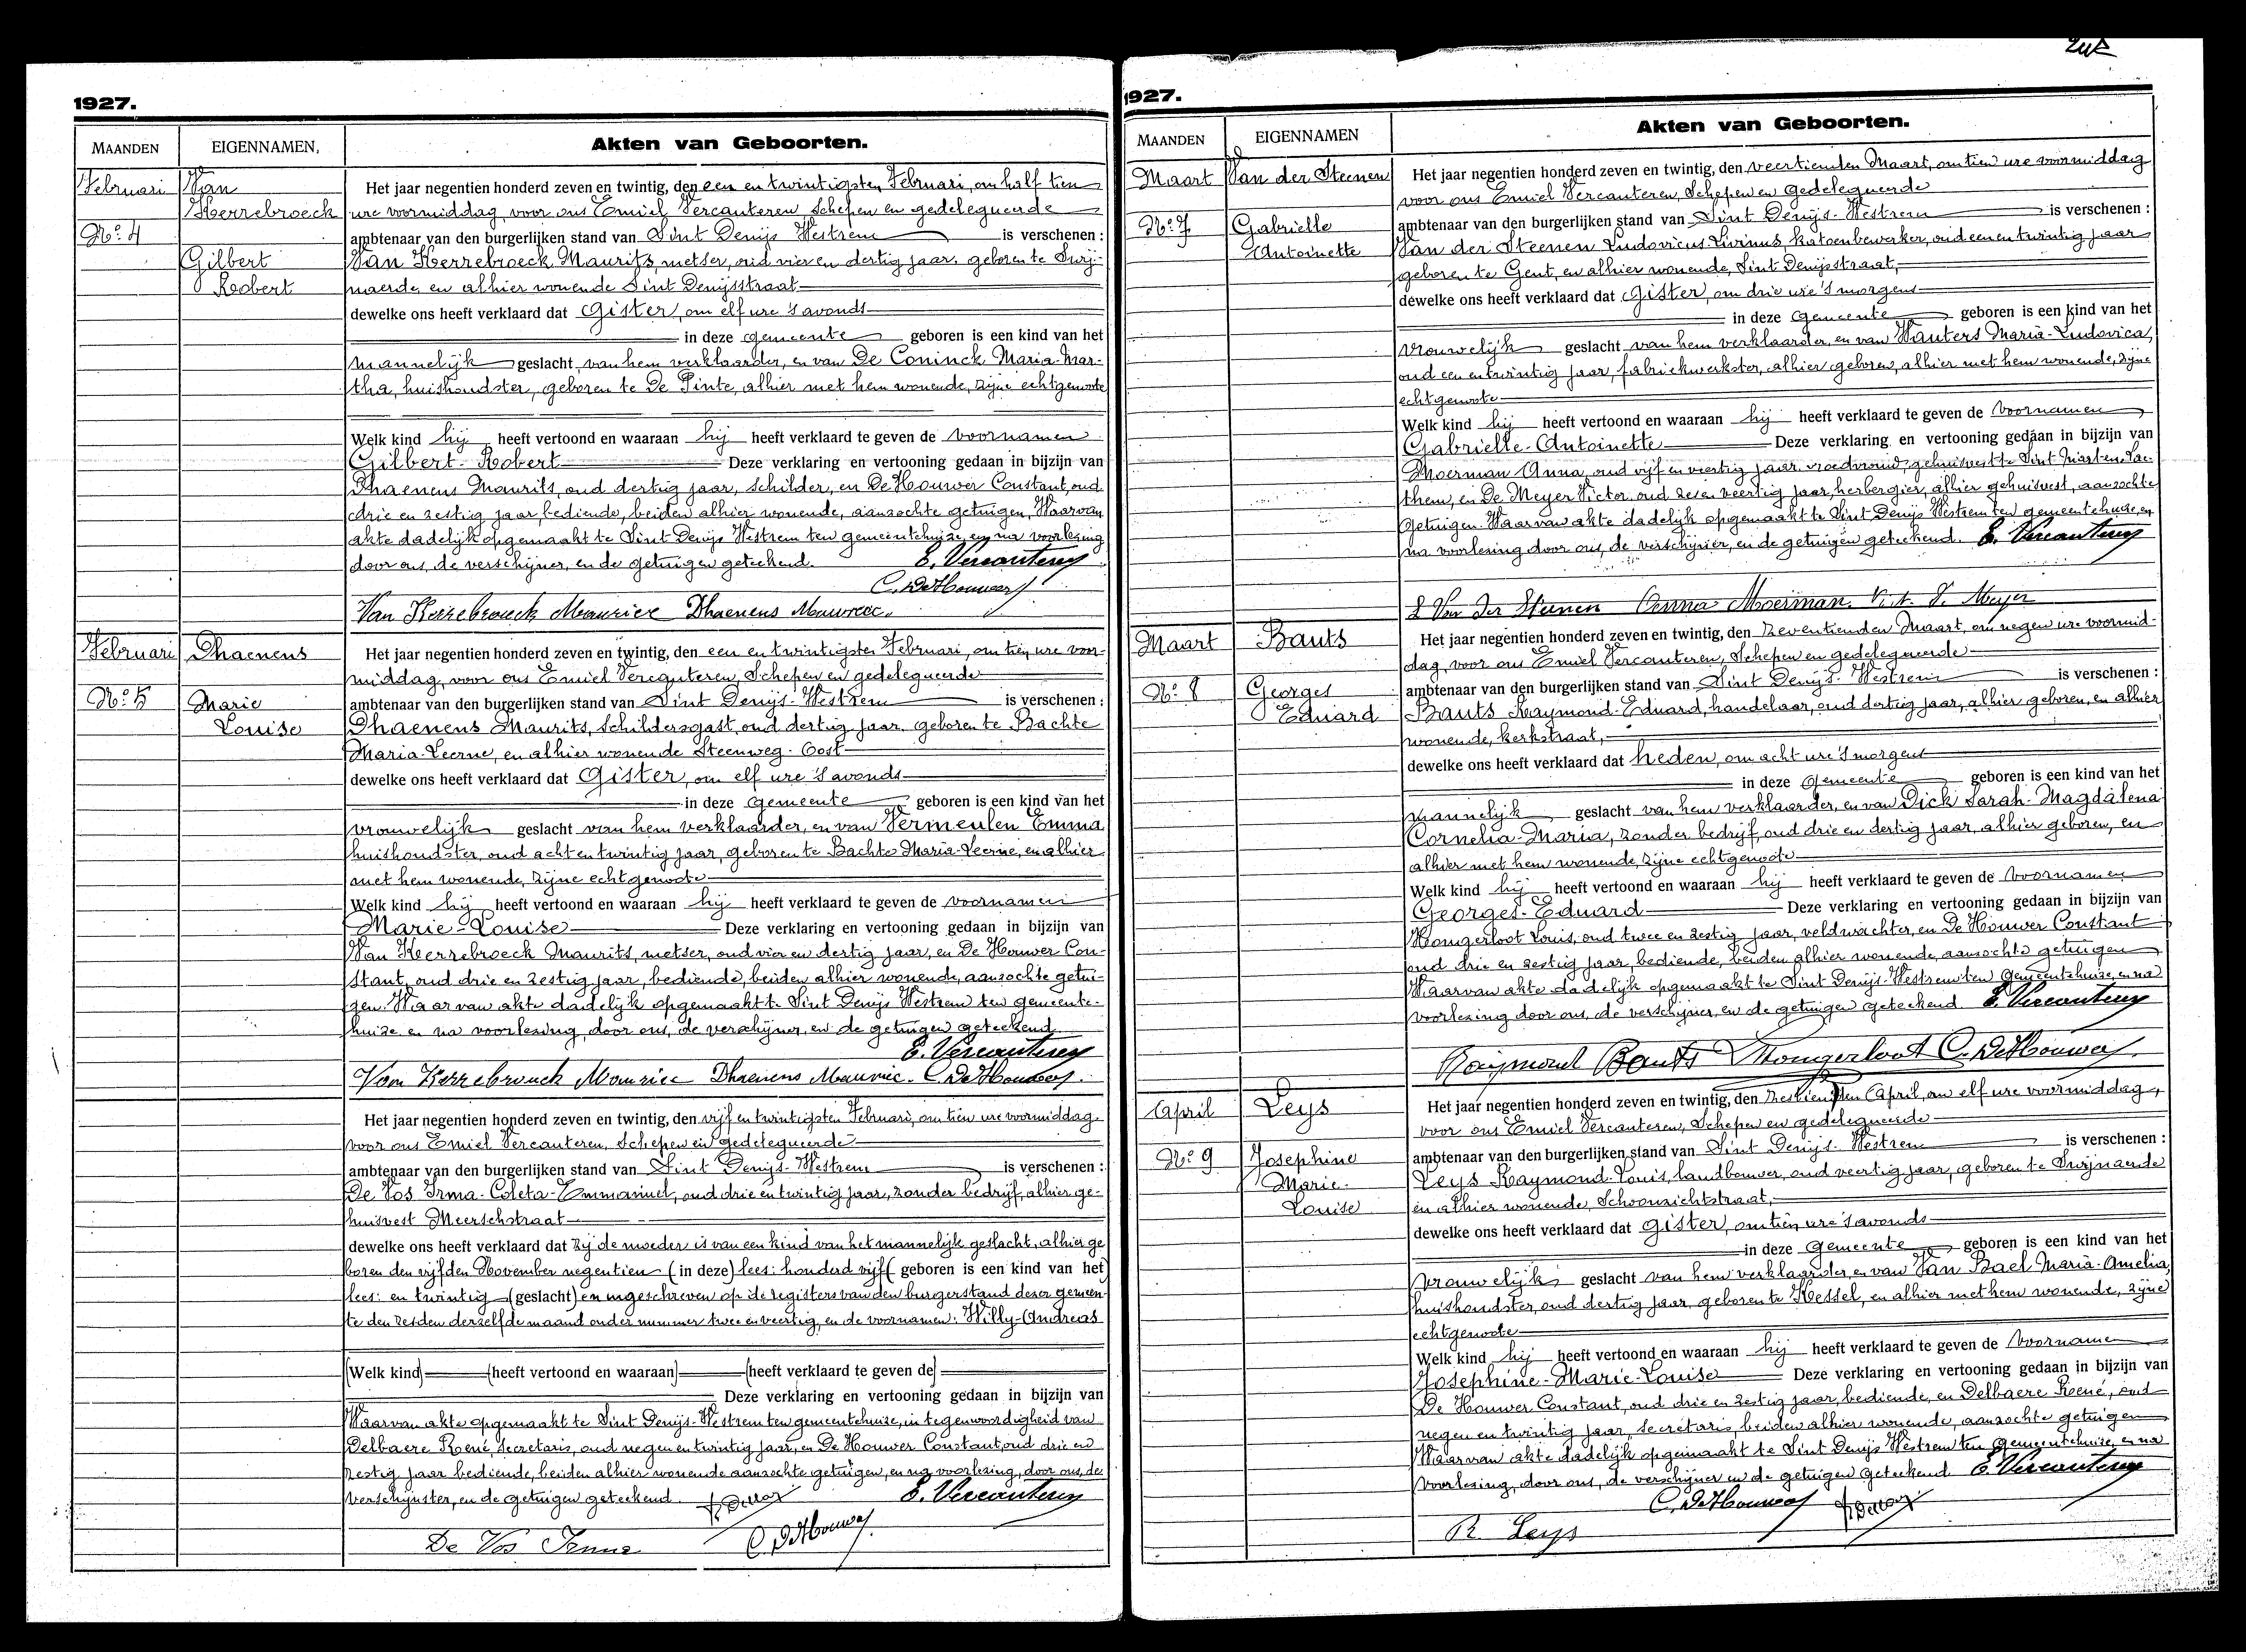 1927.
MAANDEN EIGENNAMEN, Akten van Geboorten.
Februari Van Het jaar negentien honderd zeven en twintig, den een en twintigsten Februari, om half tien
Kerrebroeck ure voormiddag, voor ons Emiel Vercauteren, Schepen en gedelegueerde
No. 4 ambtenaar van den burgerlijken stand van Sint Denijs Westrem is verschenen :
Gilbert Van Kerrebroeck Maurits, metser, oud vier en dertig jaar, geboren te Swij-
Robert naerde, en alhier wonende Sint Denijsstraat
dewelke ons heeft verklaard dat Gister, om elf ure 's avonds
in deze gemeente geboren is een kind van het
mannelijk geslacht, van hem verklaarder, en van De Coninck Maria-Mar-
tha, huishoudster, geboren te De Pinte, alhier met hem wonende, zijne echtgenoote
Welk kind hij heeft vertoond en waaraan hij heeft verklaard te geven de voornamen
Gilbert-Robert Deze verklaring en vertooning gedaan in bijzijn van
Dhaenens Maurits, oud dertig jaar, schilder, en De Houwer Constant, oud
drie en zestig jaar, bediende, beiden alhier wonende, aanzochte getuigen, Waarvan
akte dadelijk opgemaakt te Sint Denijs Westrem ten gemeentehuize, en na voorlezing
door ons, de verschijner, en de getuigen geteekend. E. Vercauteren
C. De Houwer
Van Kerrebrouck Maurice Dhaenens Maurice.
Februari Dhaenens Het jaar negentien honderd zeven en twintig, den een en twintigsten Februari, om tien ure voor-
middag, voor ons Emiel Vercauteren, Schepen en gedelegueerde
No. 5 Marie ambtenaar van den burgerlijken stand van Sint Denijs-Westrem is verschenen :
Louise Dhaenens Maurits, Schildersgast, oud dertig jaar, geboren te Bachte
Maria-Leerne, en alhier wonende Steenweg-Oost
dewelke ons heeft verklaard dat Gister, om elf ure 's avonds
in deze gemeente geboren is een kind van het
vrouwelijk geslacht van hem verklaarder, en van Vermeulen Emma
huishoudster, oud acht en twintig jaar, geboren te Bachte Maria-Leerne, en alhier
met hem wonende, zijne echtgenoote
Welk kind hij heeft vertoond en waaraan hij heeft verklaard te geven de voornamen
Marie-Louise Deze verklaring en vertooning gedaan in bijzijn van
Van Kerrebroeck Maurits, metser, oud vier en dertig jaar, en De Houwer Con-
stant, oud drie en zestig jaar, bediende, beiden alhier wonende, aanzochte getui-
gen. Waarvan akte dadelijk opgemaakt te Sint Denijs Westrem ten gemeente-
huize en na voorlezing, door ons, de verschijner, en de getuigen geteekend.
E. Vercauteren
Van Kerrebrouck Maurice Dhaenens Maurice. C. De Houwer.
Het jaar negentien honderd zeven en twintig, den vijf en twintigsten Februari, om tien ure voormiddag
voor ons Emiel Vercauteren, Schepen en gedelegueerde
ambtenaar van den burgerlijken stand van Sint Denijs-Westrem is verschenen :
De Vos Irma-Coleta-Emmanuel, oud drie en twintig jaar, zonder bedrijf, alhier ge-
huisvest Meerschstraat
dewelke ons heeft verklaard dat zij de moeder is van een kind van het mannelijk geslacht, alhier ge
boren den vijfden November negentien (in deze) lees: honderd vijf (geboren is een kind van het)
lees: en twintig (geslacht) en ingeschreven op de registers van den burgerstand dezer gemeen-
te den zesden derzelfde maand onder nummer twee en veertig, en de voornamen: Willy-Andreas
(Welk kind) (heeft vertoond en waaraan) (heeft verklaard te geven de)
Deze verklaring en vertooning gedaan in bijzijn van
Waarvan akte opgemaakt te Sint Denijs-Westrem ten gemeentehuize, in tegenwoordigheid van
Delbaere René, Secretaris, oud negen en twintig jaar, en De Houwer Constant, oud drie en
zestig jaar bediende, beiden alhier wonende aanzochte getuigen, en na voorlezing, door ons, de
verschijnster, en de getuigen geteekend. E. Vercauteren
De Vos Irma C. De Houwer
1927.
MAANDEN EIGENNAMEN Akten van Geboorten.
Maart Van der Steenen Het jaar negentien honderd zeven en twintig, den veertienden Maart, om tien ure voormiddag
voor ons Emiel Vercauteren, Schepen en gedelegueerde
No. 7 Gabrielle ambtenaar van den burgerlijken stand van Sint Denijs-Westrem is verschenen :
Antoinette Van der Steenen Ludovicus-Livinus, katoenbewerker, oud een en twintig jaar
geboren te Gent, en alhier wonende, Sint Denijsstraat,
dewelke ons heeft verklaard dat Gister, om drie ure 's morgens
in deze gemeente geboren is een kind van het
vrouwelijk geslacht van hem verklaarder, en van Wauters Maria-Ludovica,
oud een en twintig jaar, fabriekwerkster, alhier geboren, alhier met hem wonende, zijne
echtgenoote
Welk kind hij heeft vertoond en waaraan hij heeft verklaard te geven de voornamen
Gabrielle-Antoinette Deze verklaring en vertooning gedaan in bijzijn van
Moerman Anna, oud vijf en veertig jaar, vroedvrouw, gehuisvest te Sint Marten-Lae-
them, en De Meyer Victor, oud zes en veertig jaar, herbergier, alhier gehuisvest, aanzochte
getuigen. Waarvan akte dadelijk opgemaakt te Sint Denijs Westrem ten gemeentehuize, en
na voorlezing door ons, de verschijner, en de getuigen geteekend. E. Vercauteren
L Van Der Steenen Anna Moerman. Vict. D. Meyer
Maart Bauts Het jaar negentien honderd zeven en twintig, den zeventienden Maart, om negen ure voormid-
dag, voor ons Emiel Vercauteren, Schepen en gedelegueerde
No. 8 Georges ambtenaar van den burgerlijken stand van Sint Denijs-Westrem is verschenen :
Eduard Bauts Raymond-Eduard, handelaar, oud dertig jaar, alhier geboren, en alhier
wonende, kerkstraat,
dewelke ons heeft verklaard dat heden, om acht ure 's morgens
in deze gemeente geboren is een kind van het
mannelijk geslacht van hem verklaarder, en van Dick Sarah-Magdalena
Cornelia-Maria, zonder bedrijf, oud drie en dertig jaar, alhier geboren, en
alhier met hem wonende, zijne echtgenoote
Welk kind hij heeft vertoond en waaraan hij heeft verklaard te geven de voornamen
Georges-Eduard Deze verklaring en vertooning gedaan in bijzijn van
Hongerloot Louis, oud twee en zestig jaar, veldwachter, en De Houwer Constant
oud drie en zestig jaar, bediende, beiden alhier wonende, aanzochte getuigen
Waarvan akte dadelijk opgemaakt te Sint Denijs-Westrem ten gemeentehuize, en na
voorlezing door ons, de verschijner, en de getuigen geteekend E. Vercauteren
Raymond Bauts Hongerloot C. De Houwer.
April Leys Het jaar negentien honderd zeven en twintig, den zestienden April, om elf ure voormiddag,
voor ons Emiel Vercauteren, Schepen en gedelegueerde
No. 9 Josephine ambtenaar van den burgerlijken stand van Sint Denijs-Westrem is verschenen :
Marie- Leys Raymond-Louis, landbouwer, oud veertig jaar, geboren te Swijnaerde
Louise en alhier wonende, Schoonzichtstraat,
dewelke ons heeft verklaard dat gister, om tien ure 's avonds
in deze gemeente geboren is een kind van het
vrouwelijk geslacht van hem verklaarder, en van Van Bael Maria-Amelia,
huishoudster, oud dertig jaar, geboren te Kessel, en alhier met hem wonende, zijne
echtgenoote
Welk kind hij heeft vertoond en waaraan hij heeft verklaard te geven de voornamen
Josephine-Marie-Louise Deze verklaring en vertooning gedaan in bijzijn van
De Houwer Constant, oud drie en zestig jaar, bediende, en Delbaere René, oud
negen en twintig jaar, secretaris, beiden alhier wonende, aanzochte getuigen
Waarvan akte dadelijk opgemaakt te Sint Denijs Westrem ten gemeentehuize, en na
voorlezing, door ons, de verschijner en de getuigen geteekend E. Vercauteren
C. De Houwer
R Leys